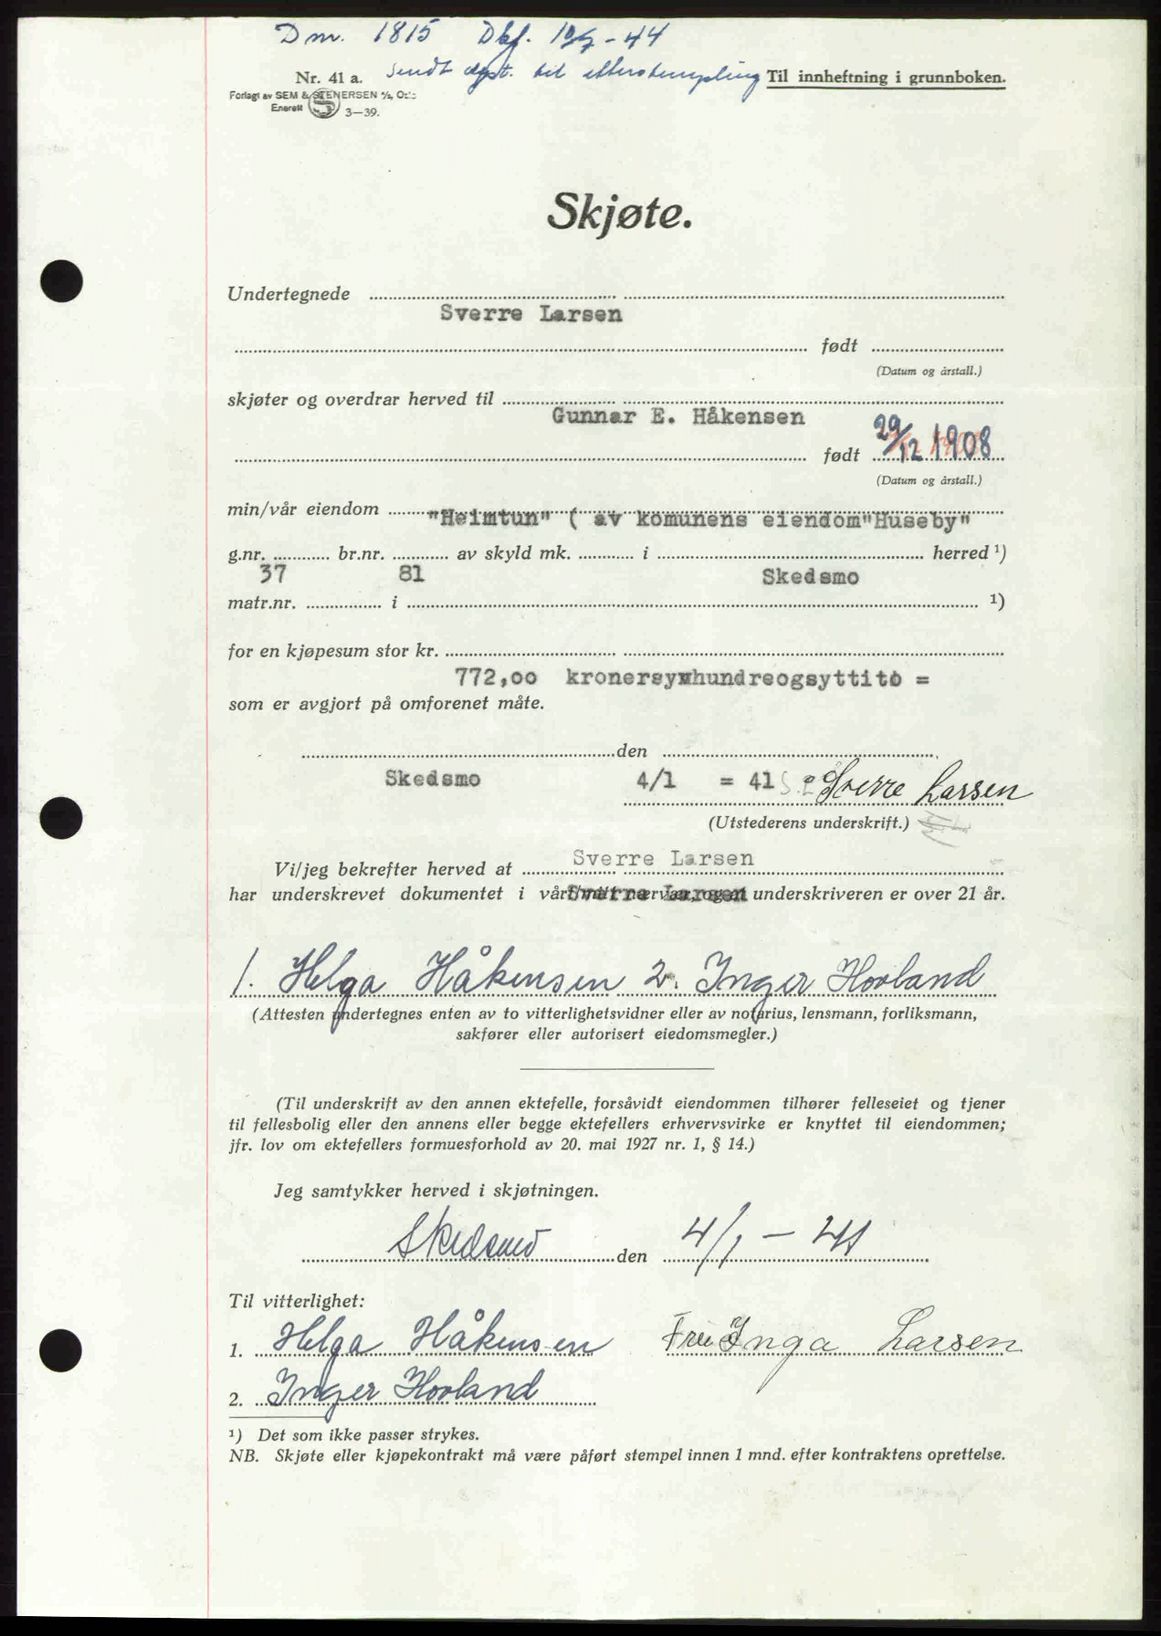 Dnr. 1815 Dkf. 12/7-44
sendt dept. til etterstempling
Nr. 41 a.
Til innheftning i grunnboken.
Forlagt av SEM & STENERSEN A/S, Oslo
Enerett
3—39.
Skjøte.
Undertegnede
Sverre Larsen
født
(Datum og årstall.)
skjøter og overdrar herved til
Gunnar E. Håkensen
født 29/12 1908
(Datum og årstall.)
min/vår eiendom "Heimtun" ( av komunens eiendom"Huseby"
g.nr. br.nr. av skyld mk. i herred ¹)
37 81 Skedsmo
matr.nr. i ¹)
for en kjøpesum stor kr.
772,oo kronersyvhundreogsyttito =
som er avgjort på omforenet måte.
den
Skedsmo 4/1 = 41 Sverre Larsen
(Utstederens underskrift.)
Vi/jeg bekrefter herved at Sverre Larsen
har underskrevet dokumentet i vårt/mitt nærvær, og at underskriveren er over 21 år.
1. Helga Håkensen 2. Inger Hovland
(Attesten undertegnes enten av to vitterlighetsvidner eller av notarius, lensmann, forliksmann,
sakfører eller autorisert eiedomsmegler.)
(Til underskrift av den annen ektefelle, forsåvidt eiendommen tilhører felleseiet og tjener
til fellesbolig eller den annens eller begge ektefellers erhvervsvirke er knyttet til eiendommen;
jfr. lov om ektefellers formuesforhold av 20. mai 1927 nr. 1, § 14.)
Jeg samtykker herved i skjøtningen.
Skedsmo den 4/1 - 41
Til vitterlighet:
1. Helga Håkensen Fru Inga Larsen
2. Inger Hovland
¹) Det som ikke passer strykes.
NB. Skjøte eller kjøpekontrakt må være påført stempel innen 1 mnd. efter kontraktens oprettelse.